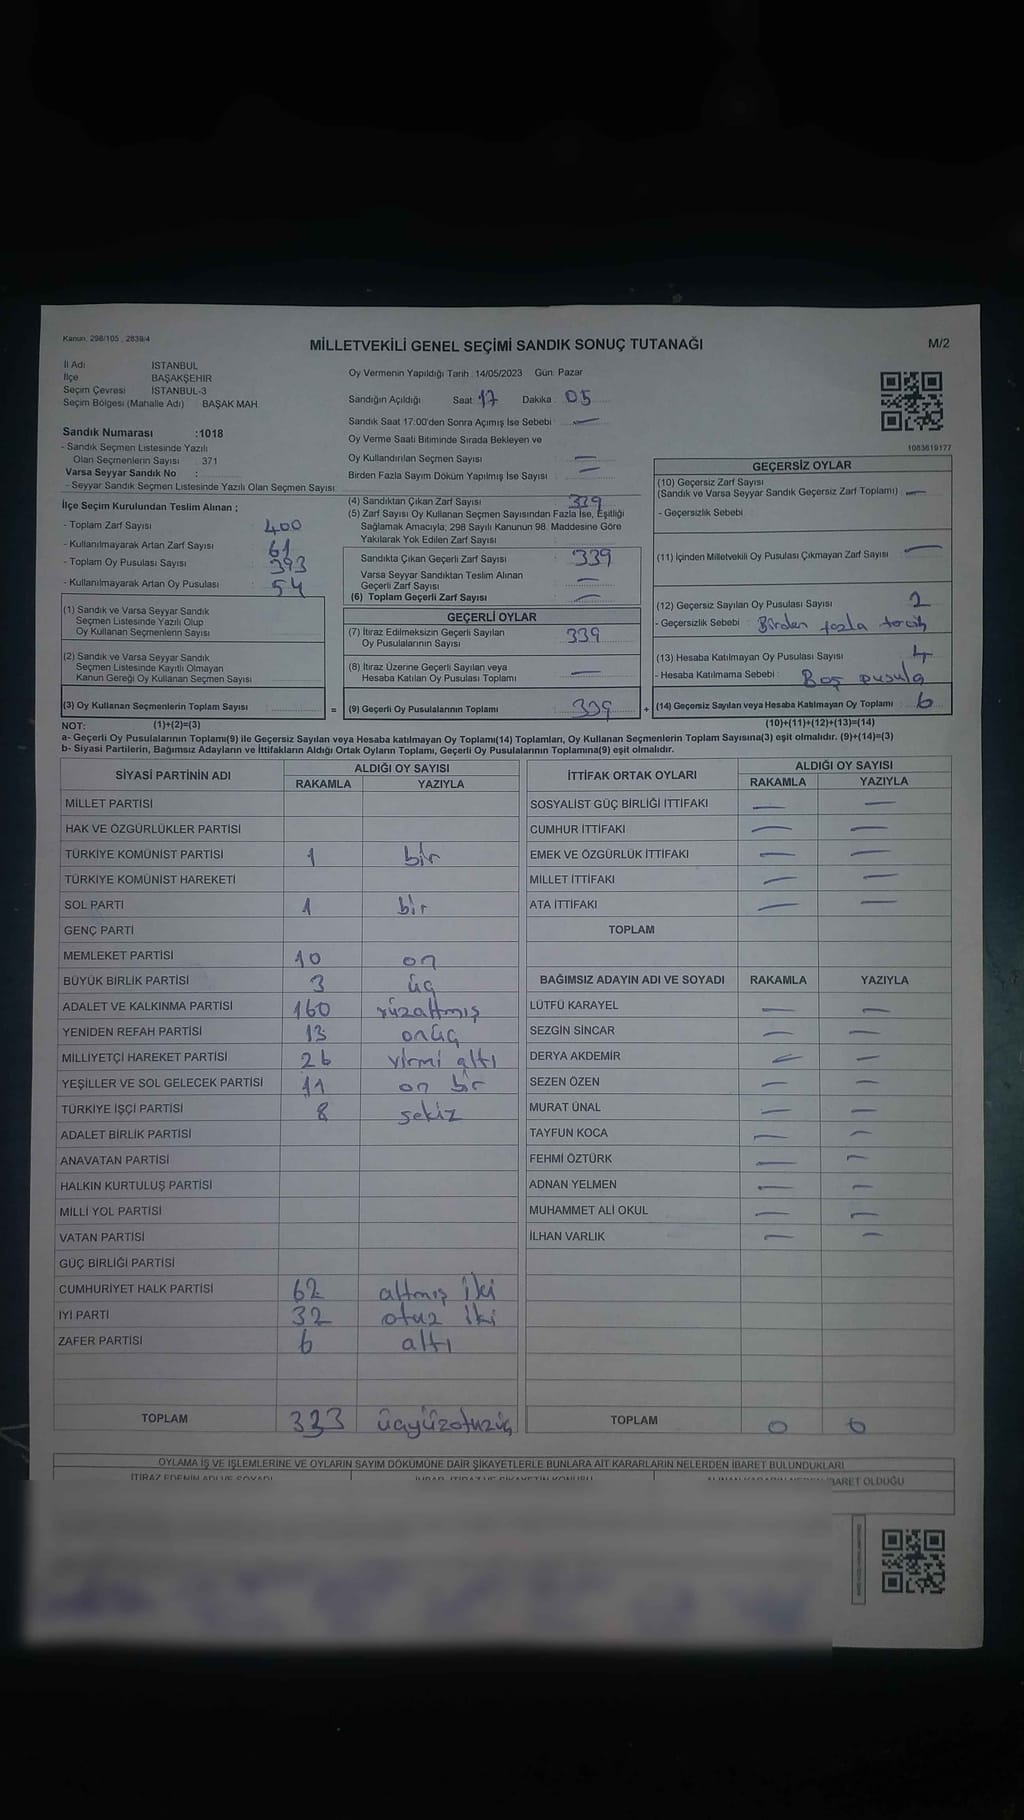 Kanun, 298/105 , 2839/4
MİLLETVEKİLİ GENEL SEÇİMİ SANDIK SONUÇ TUTANAĞI
M/2
İl Adı İSTANBUL
İlçe BAŞAKŞEHİR
Seçim Çevresi İSTANBUL-3
Seçim Bölgesi (Mahalle Adı) BAŞAK MAH.
Sandık Numarası :1018
- Sandık Seçmen Listesinde Yazılı
Olan Seçmenlerin Sayısı : 371
Varsa Seyyar Sandık No :
- Seyyar Sandık Seçmen Listesinde Yazılı Olan Seçmen Sayısı:
Oy Vermenin Yapıldığı Tarih : 14/05/2023 Gün: Pazar
Sandığın Açıldığı Saat: 17 Dakika: 05
Sandık Saat 17:00'den Sonra Açımış İse Sebebi : —
Oy Verme Saati Bitiminde Sırada Bekleyen ve
Oy Kullandırılan Seçmen Sayısı : —
Birden Fazla Sayım Döküm Yapılmış İse Sayısı : —
1083619177
İlçe Seçim Kurulundan Teslim Alınan ;
- Toplam Zarf Sayısı : 400
- Kullanılmayarak Artan Zarf Sayısı : 61
- Toplam Oy Pusulası Sayısı : 393
- Kullanılmayarak Artan Oy Pusulası : 54
(1) Sandık ve Varsa Seyyar Sandık
Seçmen Listesinde Yazılı Olup
Oy Kullanan Seçmenlerin Sayısı :
(2) Sandık ve Varsa Seyyar Sandık
Seçmen Listesinde Kayıtlı Olmayan
Kanun Gereği Oy Kullanan Seçmen Sayısı :
(3) Oy Kullanan Seçmenlerin Toplam Sayısı :
(4) Sandıktan Çıkan Zarf Sayısı : 339
(5) Zarf Sayısı Oy Kullanan Seçmen Sayısından Fazla İse, Eşitliği
Sağlamak Amacıyla; 298 Sayılı Kanunun 98. Maddesine Göre
Yakılarak Yok Edilen Zarf Sayısı :
Sandıkta Çıkan Geçerli Zarf Sayısı : 339
Varsa Seyyar Sandıktan Teslim Alınan
Geçerli Zarf Sayısı : —
(6) Toplam Geçerli Zarf Sayısı : —
GEÇERLİ OYLAR
(7) İtiraz Edilmeksizin Geçerli Sayılan
Oy Pusulalarının Sayısı : 339
(8) İtiraz Üzerine Geçerli Sayılan veya
Hesaba Katılan Oy Pusulası Toplamı : —
= (9) Geçerli Oy Pusulalarının Toplamı : 339 +
GEÇERSİZ OYLAR
(10) Geçersiz Zarf Sayısı
(Sandık ve Varsa Seyyar Sandık Geçersiz Zarf Toplamı) : —
- Geçersizlik Sebebi :
(11) İçinden Milletvekili Oy Pusulası Çıkmayan Zarf Sayısı : —
(12) Geçersiz Sayılan Oy Pusulası Sayısı : 2
- Geçersizlik Sebebi : Birden fazla tercih
(13) Hesaba Katılmayan Oy Pusulası Sayısı : 4
- Hesaba Katılmama Sebebi : Boş pusula
(14) Geçersiz Sayılan veya Hesaba Katılmayan Oy Toplamı : 6
NOT: (1)+(2)=(3) (10)+(11)+(12)+(13)=(14)
a- Geçerli Oy Pusulalarının Toplamı(9) ile Geçersiz Sayılan veya Hesaba katılmayan Oy Toplamı(14) Toplamları, Oy Kullanan Seçmenlerin Toplam Sayısına(3) eşit olmalıdır. (9)+(14)=(3)
b- Siyasi Partilerin, Bağımsız Adayların ve İttifakların Aldığı Ortak Oyların Toplamı, Geçerli Oy Pusulalarının Toplamına(9) eşit olmalıdır.
SİYASİ PARTİNİN ADI ALDIĞI OY SAYISI
RAKAMLA YAZIYLA
MİLLET PARTİSİ
HAK VE ÖZGÜRLÜKLER PARTİSİ
TÜRKİYE KOMÜNİST PARTİSİ 1 bir
TÜRKİYE KOMÜNİST HAREKETİ
SOL PARTİ 1 bir
GENÇ PARTİ
MEMLEKET PARTİSİ 10 on
BÜYÜK BİRLİK PARTİSİ 3 üç
ADALET VE KALKINMA PARTİSİ 160 yüzaltmış
YENİDEN REFAH PARTİSİ 13 onüç
MİLLİYETÇİ HAREKET PARTİSİ 26 yirmi altı
YEŞİLLER VE SOL GELECEK PARTİSİ 11 on bir
TÜRKİYE İŞÇİ PARTİSİ 8 sekiz
ADALET BİRLİK PARTİSİ
ANAVATAN PARTİSİ
HALKIN KURTULUŞ PARTİSİ
MİLLİ YOL PARTİSİ
VATAN PARTİSİ
GÜÇ BİRLİĞİ PARTİSİ
CUMHURİYET HALK PARTİSİ 62 altmış iki
İYİ PARTİ 32 otuz iki
ZAFER PARTİSİ 6 altı
TOPLAM 333 üçyüzotuzüç
İTTİFAK ORTAK OYLARI ALDIĞI OY SAYISI
RAKAMLA YAZIYLA
SOSYALİST GÜÇ BİRLİĞİ İTTİFAKI — —
CUMHUR İTTİFAKI — —
EMEK VE ÖZGÜRLÜK İTTİFAKI — —
MİLLET İTTİFAKI — —
ATA İTTİFAKI — —
TOPLAM
BAĞIMSIZ ADAYIN ADI VE SOYADI RAKAMLA YAZIYLA
LÜTFÜ KARAYEL — —
SEZGİN SİNCAR — —
DERYA AKDEMİR — —
SEZEN ÖZEN — —
MURAT ÜNAL — —
TAYFUN KOCA — —
FEHMİ ÖZTÜRK — —
ADNAN YELMEN — —
MUHAMMET ALİ OKUL — —
İLHAN VARLIK — —
TOPLAM 0 0
OYLAMA İŞ VE İŞLEMLERİNE VE OYLARIN SAYIM DÖKÜMÜNE DAİR ŞİKAYETLERLE BUNLARA AİT KARARLARIN NELERDEN İBARET BULUNDUKLARI
İTİRAZ EDENİN ADI VE SOYADI İBARET OLDUĞU